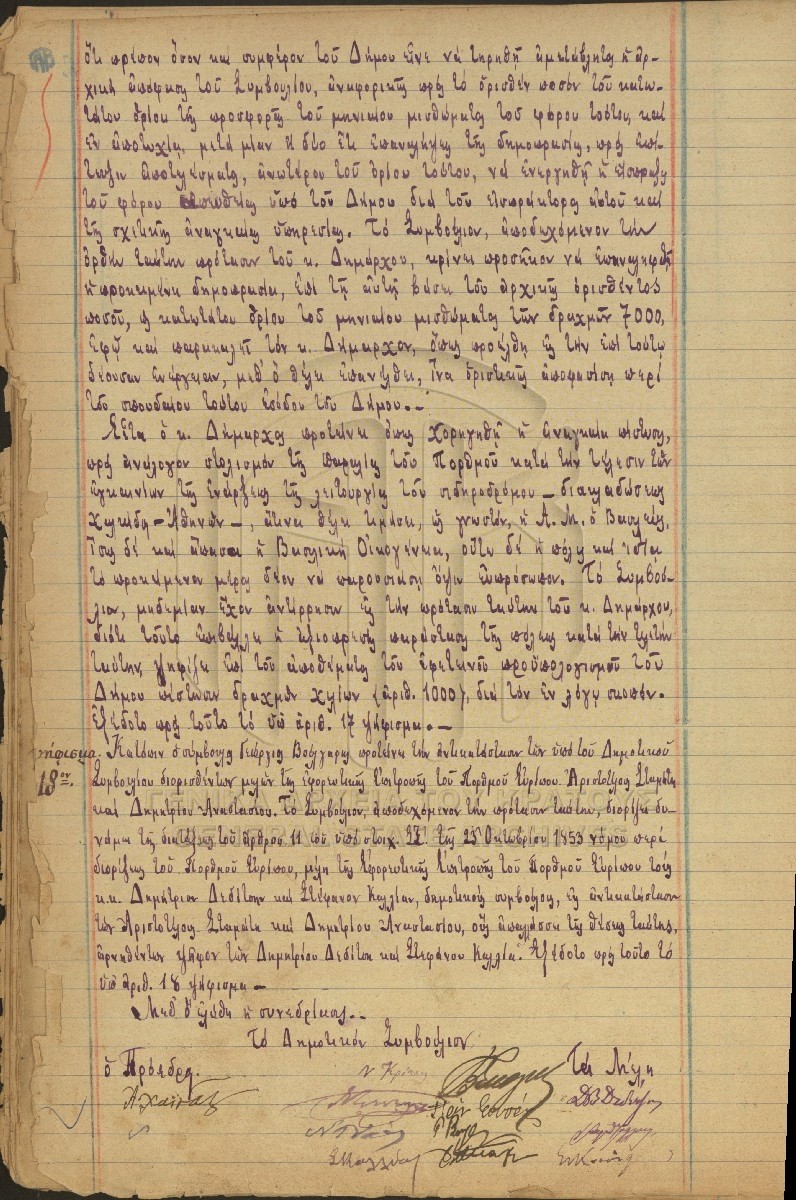 ὅτι πρέπον ὅσον καὶ συμφέρον τοῦ Δήμου εἶνε νὰ τηρηθῇ ἀμετάβλητος ἡ ἀρ-
χικὴ ἀπόφασις τοῦ Συμβουλίου, ἀναφορικῶς πρὸς τὸ ὁρισθὲν ποσὸν τοῦ κατω-
τάτου ὁρίου τῆς προσφορᾶς τοῦ μηνιαίου μισθώματος τοῦ φόρου τούτου, καὶ
ἐν ἀποτυχίᾳ, μετὰ μίαν ἢ δύο ἔτι ἐπαναλήψεις τῆς δημοπρασίας, πρὸς ἐπί-
τευξιν ἀποτελέσματος, ἀνωτέρου τοῦ ὁρίου τούτου, νὰ ἐνεργηθῇ ἡ εἴσπραξις
τοῦ φόρου ἀπευθείας ὑπὸ τοῦ Δήμου διὰ τοῦ εἰσπράκτορος αὐτοῦ καὶ
τῆς σχετικῆς ἀναγκαίας ὑπηρεσίας. Τὸ Συμβούλιον, ἀποδεχόμενον τὴν
ὀρθὴν ταύτην πρότασιν τοῦ κ. Δημάρχου, κρίνει προσῆκον νὰ ἐπαναληφθῇ
ἡ προκειμένη δημοπρασία, ἐπὶ τῇ αὐτῇ βάσει τοῦ ἀρχικῶς ὁρισθέντος
ποσοῦ, ὡς κατωτάτου ὁρίου τοῦ μηνιαίου μισθώματος τῶν δραχμῶν 7000,
ἐφ' ᾧ καὶ παρακαλεῖ τὸν κ. Δήμαρχον, ὅπως προέλθῃ εἰς τὴν ἐπὶ τούτῳ
δέουσαν ἐνέργειαν, μεθ' ὃ θέλει ἐπανέλθει, ἵνα ὁριστικῶς ἀποφασίσῃ περὶ
τοῦ σπουδαίου τούτου ἐσόδου τοῦ Δήμου.
Εἶτα ὁ κ. Δήμαρχος προτείνει ὅπως χορηγηθῇ ἡ ἀναγκαία πίστωσις,
πρὸς ἀνάλογον στολισμὸν τῆς παραλίας τοῦ Πορθμοῦ κατὰ τὴν τέλεσιν τῶν
ἐγκαινίων τῆς ἐνάρξεως τῆς λειτουργίας τοῦ σιδηροδρόμου – διακλαδώσεως
Χαλκίδος – Ἀθηνῶν –, ἅτινα θέλει τιμήσει, ὡς γνωστόν, ἡ Α. Μ. ὁ Βασιλεύς,
ἴσως δὲ καὶ ἅπασα ἡ Βασιλικὴ Οἰκογένεια, οὕτω δὲ ἡ πόλις καὶ ἰδίᾳ
τὸ προκείμενον μέρος δέον νὰ παρουσιάσῃ ὄψιν εὐπρόσωπον. Τὸ Συμβού-
λιον, μηδεμίαν ἔχον ἀντίρρησιν εἰς τὴν πρότασιν ταύτην τοῦ κ. Δημάρχου,
διότι τοῦτο ἐπιβάλλει ἡ ἀξιοπρεπὴς παράστασις τῆς πόλεως κατὰ τὴν τελετὴν
ταύτην, ψηφίζει ἐπὶ τοῦ ἀποθέματος τοῦ ἐφετεινοῦ προϋπολογισμοῦ τοῦ
Δήμου πίστωσιν δραχμῶν χιλίων (ἀριθ. 1000), διὰ τὸν ἐν λόγῳ σκοπόν.
Ἐξεδόθη πρὸς τοῦτο τὸ ὑπ' ἀριθ. 17 ψήφισμα. –
ψήφισμα 18ον. Κατόπιν ὁ σύμβουλος Γεώργιος Βούλγαρης προτείνει τὴν ἀντικατάστασιν τῶν ὑπὸ τοῦ Δημοτικοῦ
Συμβουλίου διορισθέντων μελῶν τῆς ἐφορευτικῆς Ἐπιτροπῆς τοῦ Πορθμοῦ Εὐρίπου Ἀριστοτέλους Σταμάτη
καὶ Δημητρίου Ἀναστασίου. Τὸ Συμβούλιον, ἀποδεχόμενον τὴν πρότασιν ταύτην, διορίζει δυ-
νάμει τῆς διατάξεως τοῦ ἄρθρου 11 τοῦ ὑπὸ στοιχ. ΣΖ΄. τῆς 25 Ὀκτωβρίου 1853 νόμου περὶ
διορύξεως τοῦ Πορθμοῦ Εὐρίπου, μέλη τῆς Ἐφορευτικῆς Ἐπιτροπῆς τοῦ Πορθμοῦ Εὐρίπου τοὺς
κ.κ. Δημήτριον Δεδίτσην καὶ Στέφανον Καλλίαν, δημοτικοὺς συμβούλους, εἰς ἀντικατάστασιν
τῶν Ἀριστοτέλους Σταμάτη καὶ Δημητρίου Ἀναστασίου, οὓς ἀπαλλάσσει τῆς θέσεως ταύτης,
ἀρνηθέντων ψῆφον τῶν Δημητρίου Δεδίτση καὶ Στεφάνου Καλλία. Ἐξεδόθη πρὸς τοῦτο τὸ
ὑπ' ἀριθ. 18 ψήφισμα –
Μεθ' ὃ ἐλύθη ἡ συνεδρίασις.
Τὸ Δημοτικὸν Συμβούλιον
ὁ Πρόεδρος. Τὰ Μέλη